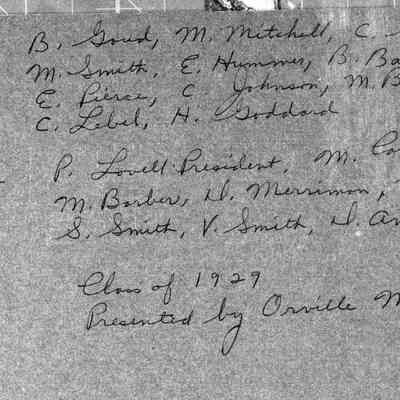 B. Goud, M. Mitchell, C.
M. Smith, E. Hummer, B. Ba
E. Pierce, C. Johnson, M. B
C. Lebel, H. Goddard
P. Lovell President, M. Co
M. Barber, D. Merrimon,
S. Smith, V. Smith, D. An
Class of 1929
Presented by Orville M